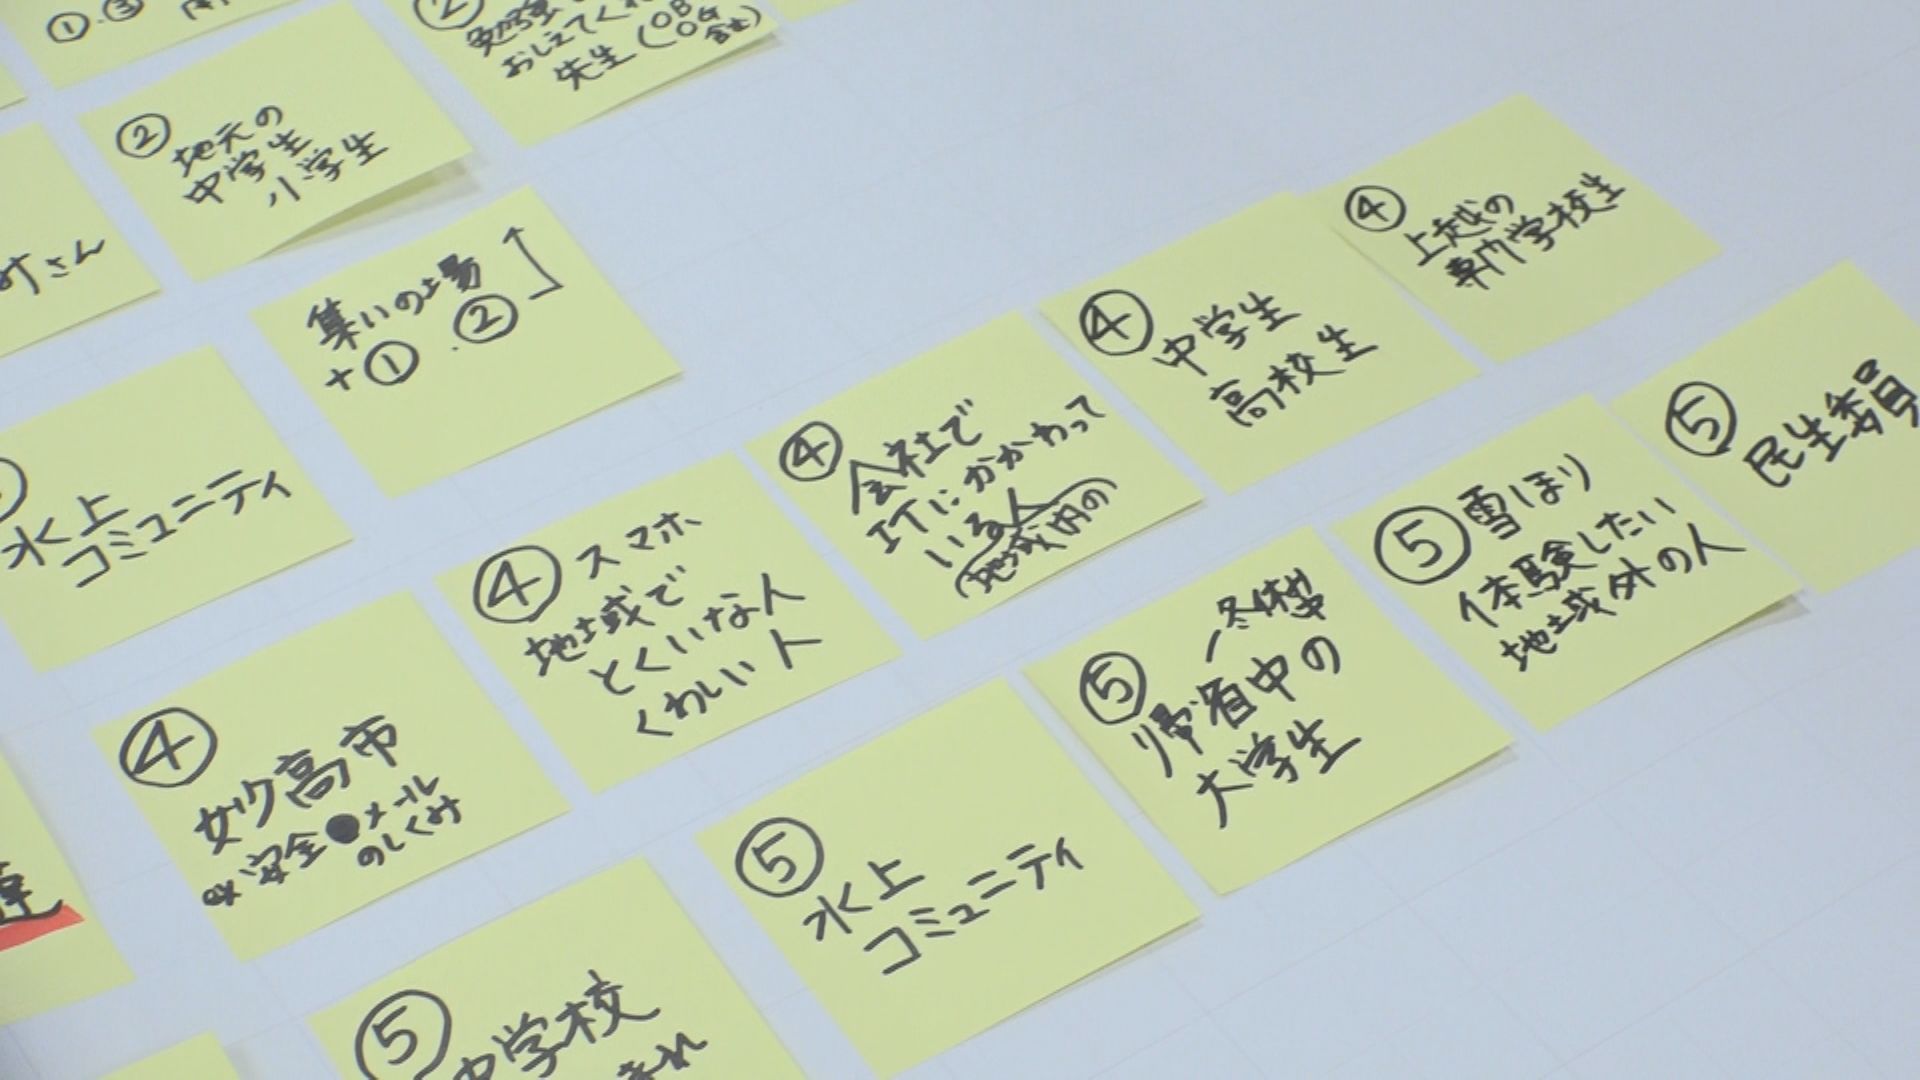 ①.③
②
勉強
おしえてくれ
先生(OB OG 含む)
②
地元の
中学生
小学生
さん
集いの場
+① . ②
水上
コミュニティ
④
上越の
専門学校生
④
中学生
高校生
④
会社で
ITにかかわって
いる人
(地域内の)
④ スマホ
地域で
とくいな人
くわしい人
④
妙高市
ex 安全●メール
のしくみ
⑤
民生委員
⑤ 雪ほり
体験したい
地域外の人
⑤
冬休み中
帰省中の
大学生
⑤
水上
コミュニティ
⑤
中学校